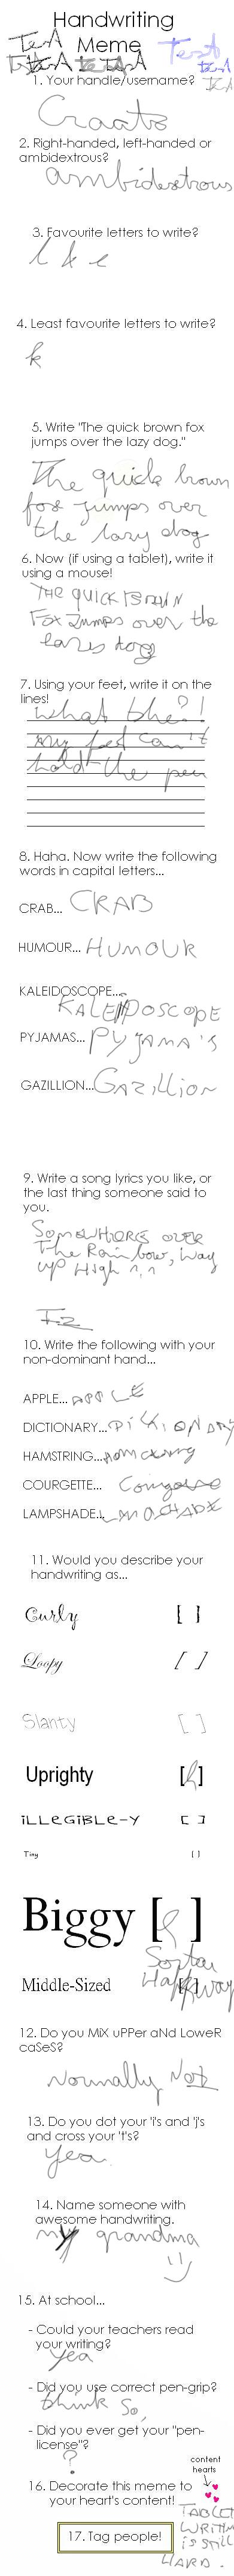 Handwriting
Meme
Test
1. Your handle/username?
Craats
2. Right-handed, left-handed or
ambidextrous?
ambidextrous
3. Favourite letters to write?
l k e
4. Least favourite letters to write?
k
5. Write "The quick brown fox
jumps over the lazy dog."
The quick brown
fox jumps over
the lazy dog
6. Now (if using a tablet), write it
using a mouse!
THE QUICK BROWN
Fox Jumps over the
lazes dog
7. Using your feet, write it on the
lines!
what the?!
my feet can't
hold the pen
8. Haha. Now write the following
words in capital letters...
CRAB... CRAB
HUMOUR... HUMOUR
KALEIDOSCOPE...
KALEIDOSCOPE
PYJAMAS... PYJAMA'S
GAZILLION... GAZiLLiON
9. Write a song lyrics you like, or
the last thing someone said to
you.
SOMEWHERE OVER
The Rainbow, Way
up High
10. Write the following with your
non-dominant hand...
APPLE... APPLE
DICTIONARY... DICTIONARY
HAMSTRING...
COURGETTE...
LAMPSHADE...
11. Would you describe your
handwriting as...
Curly [ ]
Loopy [ ]
Slanty [ ]
Uprighty [ ]
iLLeGiBLe-Y [ ]
Tiny [ ]
Biggy [ ]
Sorta
Half way
Middle-Sized [ ]
12. Do you MiX uPPer aNd LoweR
caSeS?
Normally Not
13. Do you dot your 'i's and 'j's
and cross your 't's?
Yea
14. Name someone with
awesome handwriting.
my grandma
=)
15. At school...
- Could your teachers read
your writing?
Yea
- Did you use correct pen-grip?
think so,
- Did you ever get your "pen-
license"?
?
content
hearts
16. Decorate this meme to
your heart's content!
TABLET
WRITING
iS STILL
HARD.
17. Tag people!